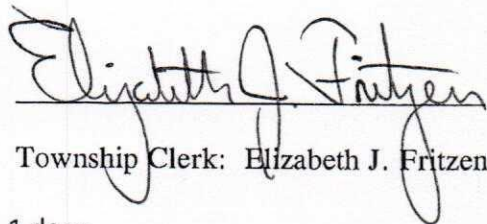 Elizabeth J. Fritzen
Township Clerk: Elizabeth J. Fritzen